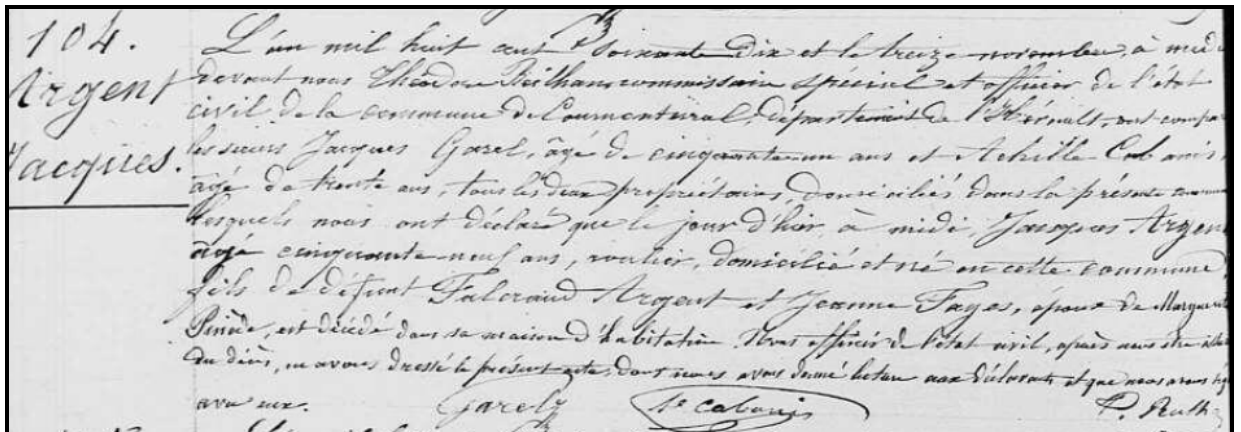 104.
Argent
Jacques.
L'an mil huit cent soixante dix et le treize novembre, à midi
devant nous Théodore commissaire spécial et officier de l'état
civil de la commune de Cournonterral, département de l'Hérault, ont compar
les sieurs Jacques Garel, âgé de cinquante-un ans et Achille Cabanis,
âgé de trente ans, tous les deux propriétaires, domiciliés dans la présente commune
lesquels nous ont déclaré que le jour d'hier, à midi, Jacques Argen
âgé cinquante-neuf ans, routier, domicilié et né en cette commune,
fils de défunt Fulcrand Argent et Jeanne Fages, époux de Marguerite
est décédé dans sa maison d'habitation. Nous officier de l'état civil, après nous être
du décès, en avons dressé le présent acte, dont nous avons donné lecture aux déclarants et que nous avons
avec eux. Garel Cabanis P.